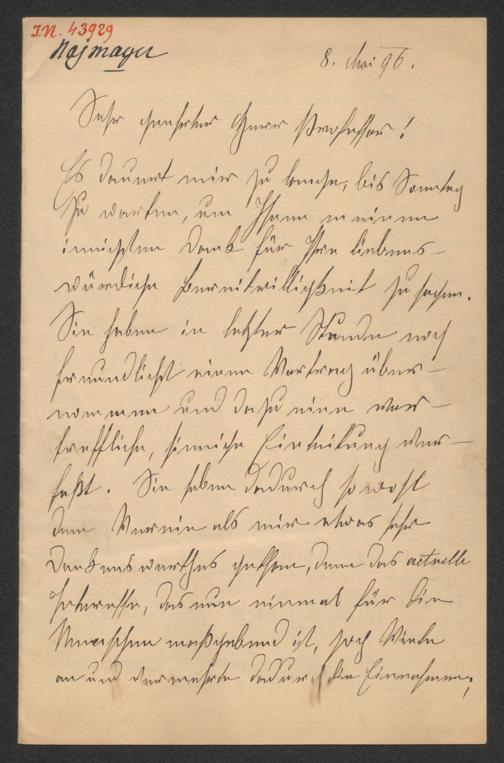 I.N. 43929
Najmajer
8. Mai 96.
Sehr geehrter Herr Professor!
Es dauert mir zu lange, bis Sonntag
zu warten, um Ihnen meinen
innigsten Dank für Ihre liebens-
würdige Bereitwilligkeit zu sagen.
Sie haben in letzter Stunde noch
freundlichst einen Vortrag über-
nommen und dazu eine vor-
treffliche, sinnige Einleitung ver-
faßt. Sie haben dadurch sowohl
dem Verein als mir etwas sehr
Dankenswerthes gethan, denn das actuelle
Interesse, das nun einmal für die
Menschen maßgebend ist, zog Viele
an und vermehrte dadurch die Einnahmen;